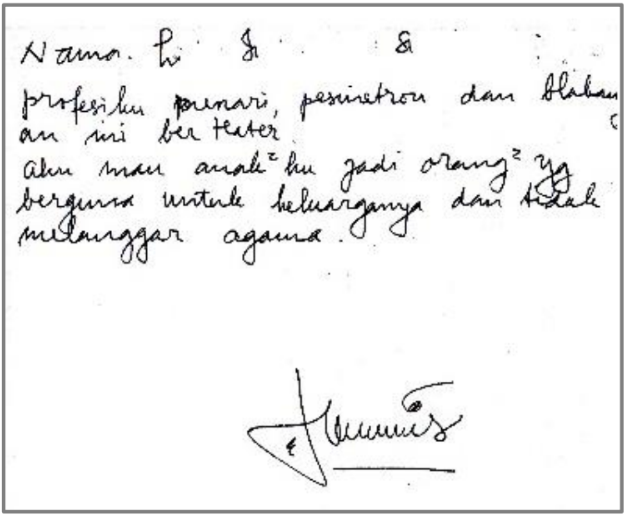 Nama. L S S
profesiku penari, pesinetron dan blakang
an ini ber teater
aku mau anak² ku jadi orang² yg
berguna untuk keluarganya dan tidak
melanggar agama.